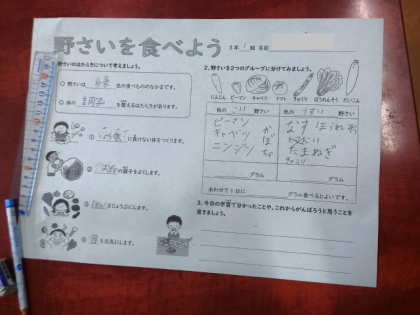 野さいを食べよう
3年 1 組 名前
野さいのはたらきについて考えましょう。
○ 野さいは 緑 色の食べもののなかまです。
○ 体の 調子 を整えるはたらきがあります。
① に負けない体をつくります。
② の調子をよくします。
③ をじょうぶにします。
④ を元気にします。
2. 野さいを2つのグループに分けてみましょう。
にんじん ピーマン キャベツ トマト きゅうり ほうれんそう だいこん
色の こい 野さい
ピーマン
キャベツ
ニンジン
かぼちゃ
色の うすい 野さい
なす
たまねぎ
きゅうり
グラム
グラム
あわせて1日に グラム食べるとよいです。
3. 今日の学習で分かったことや、これからがんばろうと思うことを
書きましょう。